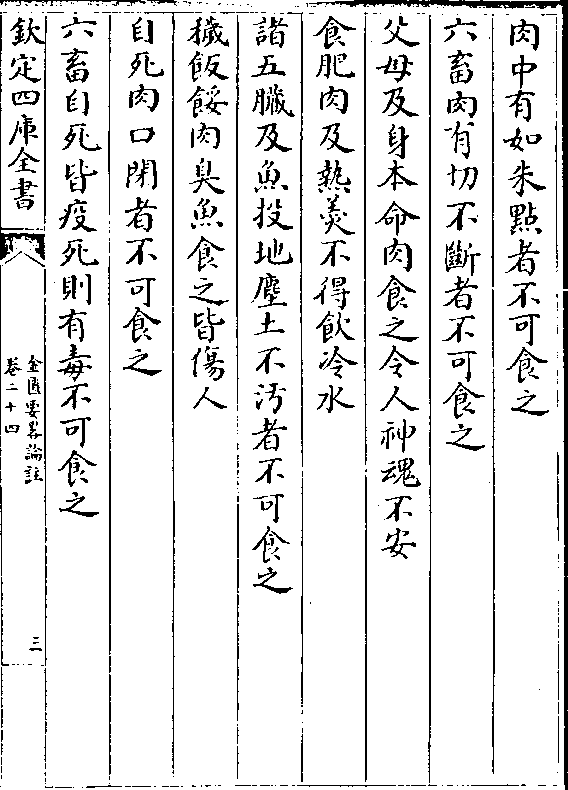 肉中有如朱點者不可食之
六畜肉有切不斷者不可食之
父母及身本命肉食之令人神魂不安
食肥肉及熱羮不得飲冷水
諸五臟及魚投地塵土不汚者不可食之
穢飯餒肉臭魚食之皆傷人
自死肉口閉者不可食之
六畜自死皆疫死則有毒不可食之
欽定四庫全書
金匱要畧論註
卷二十四
三